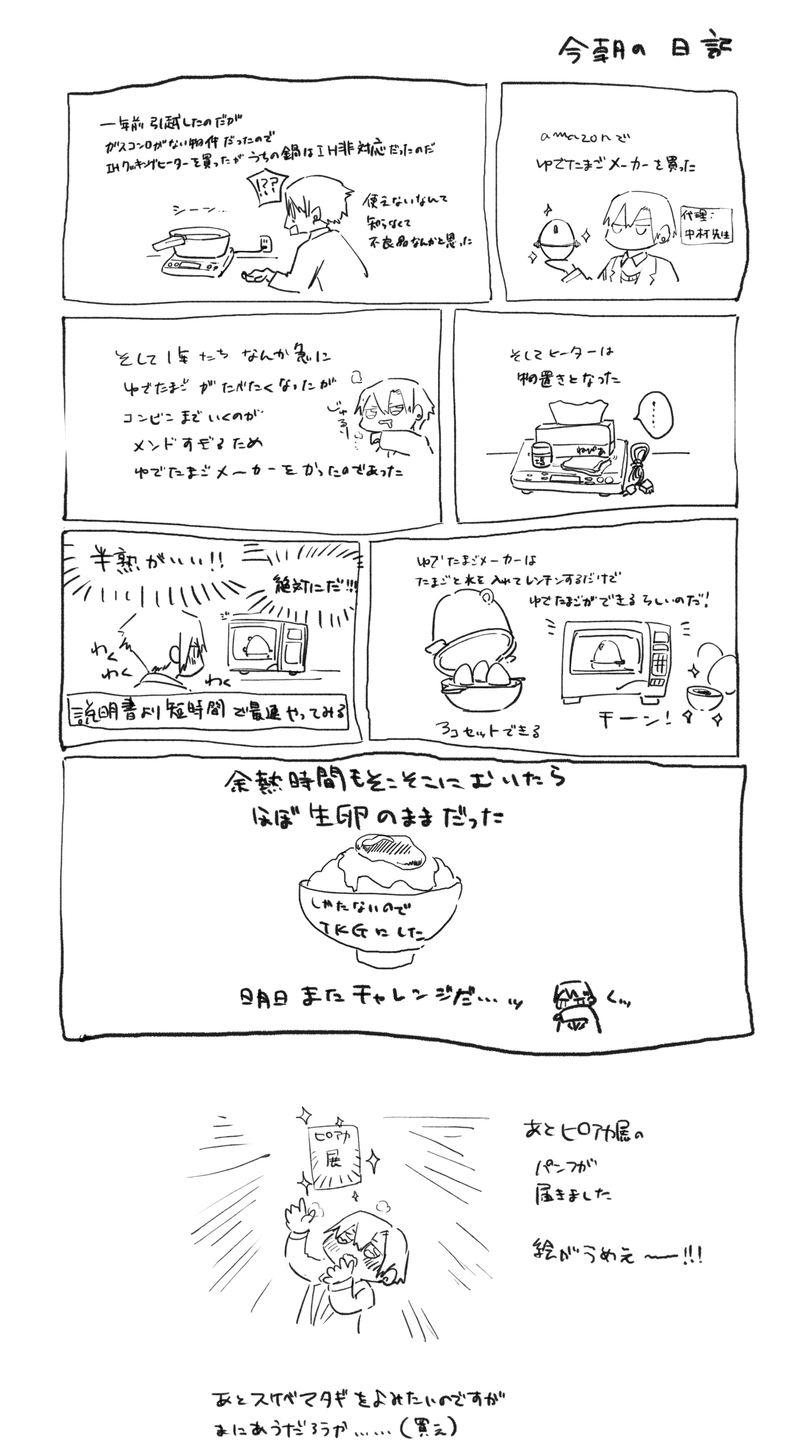 今朝の 日記
amazonで
ゆでたまごメーカーを買った
代理:
中村先生
一年前 引越したのだが
ガスコンロがない物件だったので
IHクッキングヒーターを買ったが うちの鍋はIH非対応だったのだ
!??
シーン…
使えないなんて
知らなくて
不良品なんかと思った
そしてヒーターは
物置きとなった
…!
塩
ねぴあ
そして1年たち なんか急に
ゆでたまごがたべたくなったが
コンビニまでいくのが
メンドすぎるため
ゆでたまごメーカーをかったのであった
じゅるり
ゆでたまごメーカーは
たまごと水を入れてレンチンするだけで
ゆでたまごができるらしいのだ!
3コセットできる
チーン!
半熟がいい!!
絶対にだ!!!
わくわく
わく
説明書より短時間で最速やってみる
余熱時間もそこそこにむいたら
ほぼ生卵のままだった
しかたないので
TKGにした
明日またチャレンジだ…ッ
くッ
ヒロアカ
展
あとヒロアカ展の
パンフが
届きました
絵がうめえ〜〜!!!
あとスケベマタギをよみたいのですが
まにあうだろうか……(買え)